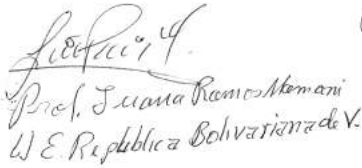 Prof. Juana Ramos Mamani
U E. República Bolivariana de V.